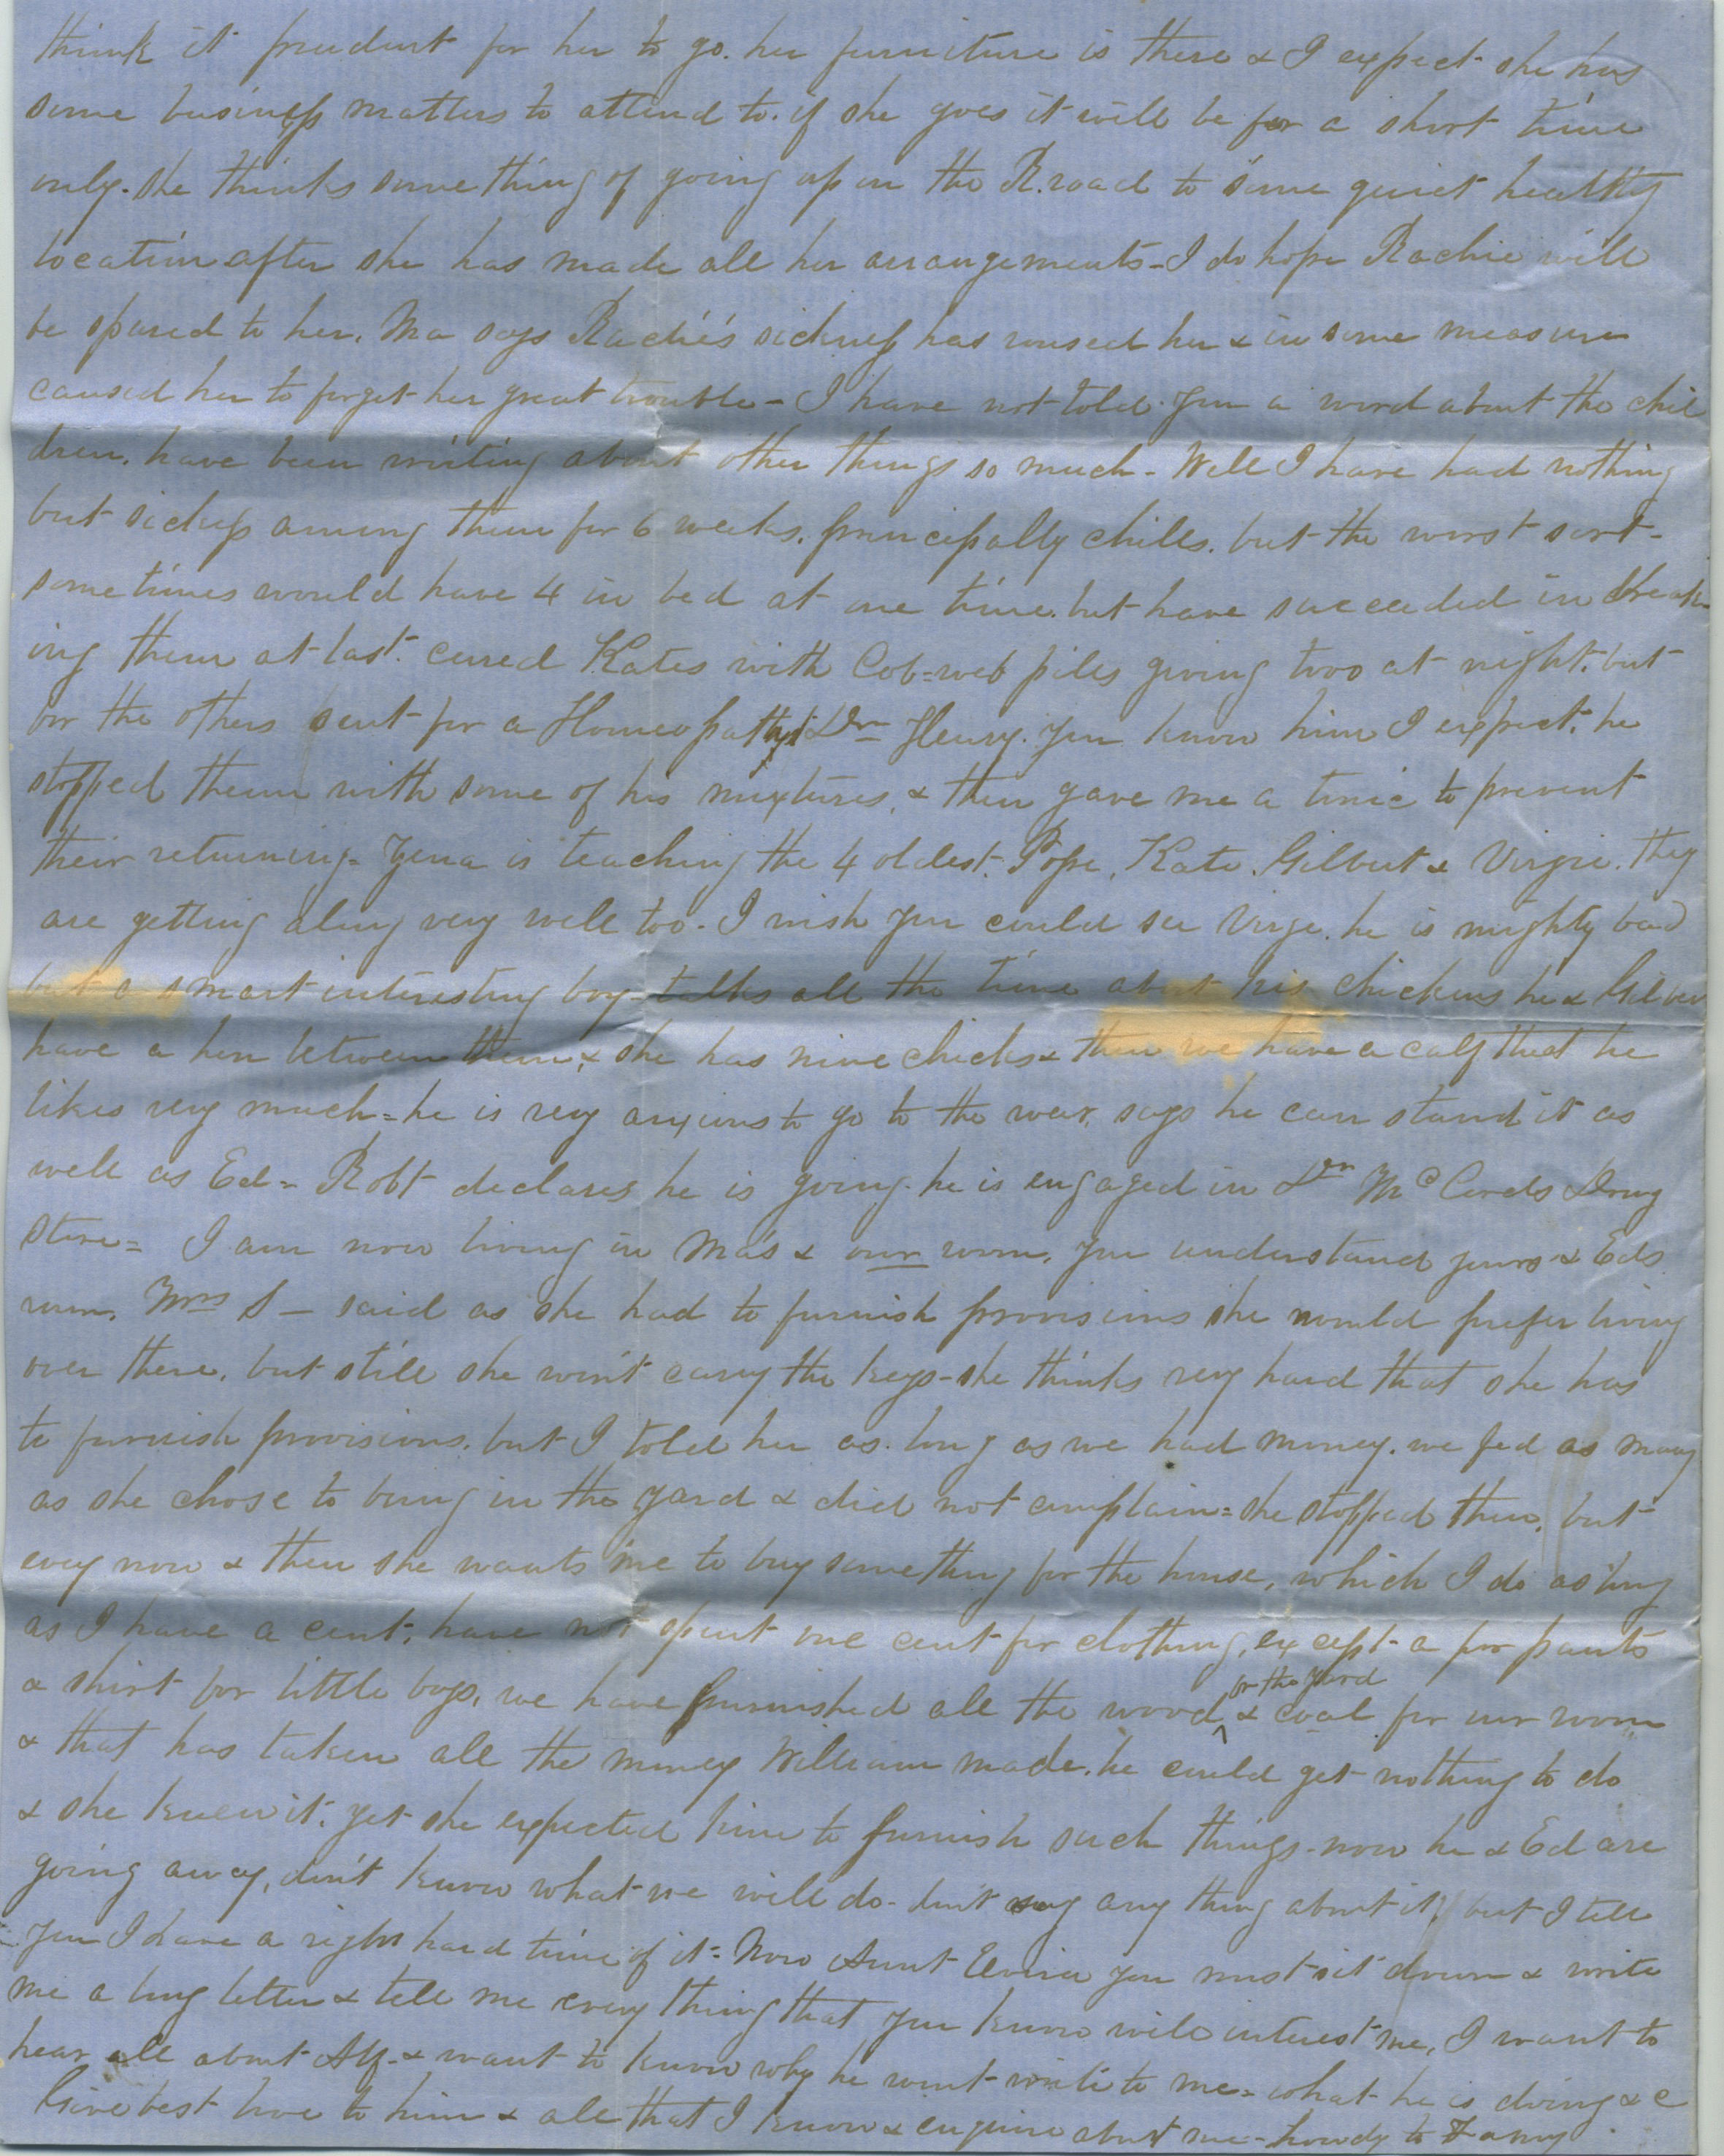 think it prudent for her to go. her furniture is there & I expect she has
some business matters to attend to. if she goes it will be for a short time
only. she thinks some thing of going up on the R.road to some quiet healthy
location after she has made all her arrangements - I do hope Rachie will
be spared to her. Ma says Rachie's sickness has roused her & in some measure
caused her to forget her great trouble - I have not told you a word about the chil
dren. have been writing about other things so much - Well I have had nothing
but sickness among them for 6 weeks. principally chills. but the worst sort -
some times would have 4 in bed at one time. but have succeeded in break-
ing them at last. cured Kates with Cob=web pills giving two at night. but
for the others sent for a Homeopathist Dr Henry. you know him I expect. he
stopped them with some of his mixtures, & then gave me a tonic to prevent
their returning = Zena is teaching the 4 oldest. Pope, Kate. Gilbert & Virgie. they
are getting along very well too - I wish you could see Virge. he is mighty bad
but a smart interesting boy - talks all the time about his chickens he & Gilber
have a hen between them, & she has nine chicks & then we have a calf that he
likes very much = he is very anxious to go to the war, says he can stand it as
well as Ed = Robt declares he is going. he is engaged in Dr McCords Drug
Store = I am now living in Ma's & our room, you understand yours & Eds
room. Mrs S - said as she had to furnish provisions she would prefer living
over there. but still she won't carry the keys - she thinks very hard that she has
to furnish provisions. but I told her as long as we had money. we fed as many
as she chose to bring in the yard & did not complain = she stopped then, but
every now & then she wants me to buy something for the house, which I do as long
as I have a cent. have not spent one cent for clothing, except a pr pants
a shirt for little boys, we have furnished all the wood for the yard & coal for our room
& that has taken all the money William made. he could get nothing to do
& she knew it. yet she expected him to furnish such things - now he & Ed are
going away, don't know what we will do - don't say any thing about it, but I tell
you I have a right hard time of it = Now Aunt Elvira you must sit down & write
me a long letter & tell me every thing that you know will interest me, I want to
hear all about Alf - & want to know why he wont write to me = what he is doing & c
Give best love to him & all that I know & enquire about me - howdy to Fanny